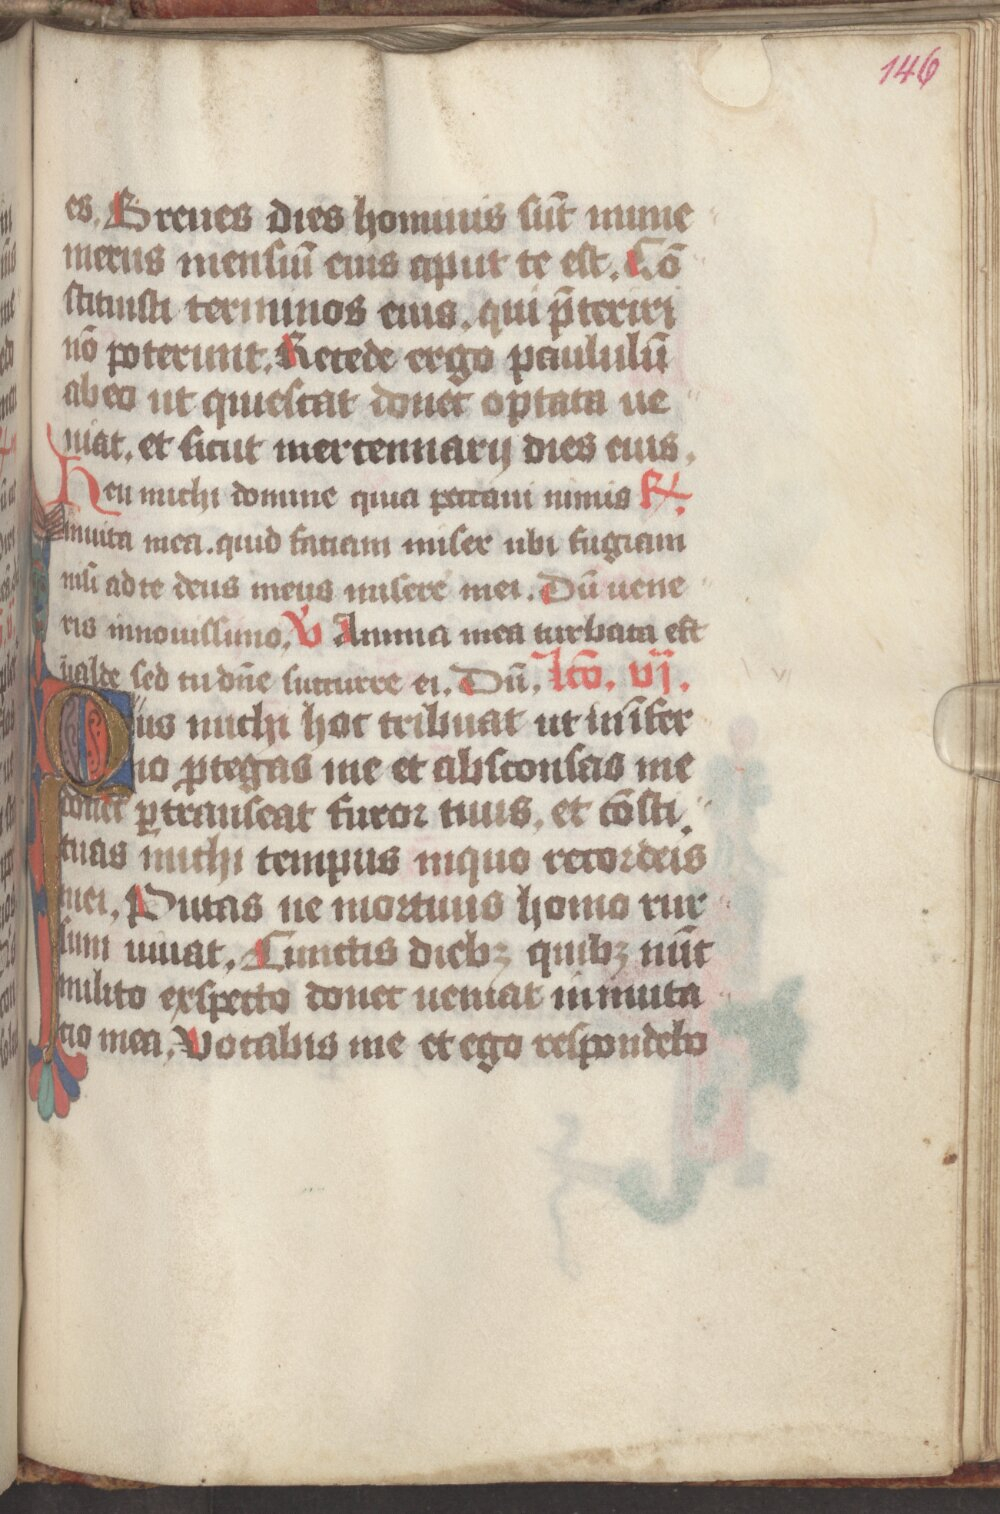 146
es. Breues dies hominis sūt nume
merus mensiū eius aput te est. Cō
stituisti terminos eius. qui p̄teriri
nō poterunt. Recede ergo paululū
ab eo ut quiescat donec optata ue
niat. et sicut mercennarij dies eius.
Heu michi domine quia peccaui nimis R.
inuita mea. quid faciam miser ubi fugiam
nisi ad te deus meus misere mei. Dū uene
ris innouissimo. V Anima mea turbata est
ualde sed tu dn̄e succurre ei. Dū. lcō. vij.
Quis michi hoc tribuat ut in īfer
no ꝓtegas me et abscondas me
donec ꝑtranseat furor tuus. et cōsti
tuas michi tempus inquo recorderis
mei. Putas ne mortuus homo rur
sum uiuat. Cunctis diebꝫ quibꝫ nūc
milito exspecto donec ueniat inmuta
cio mea. Vocabis me et ego respondebo